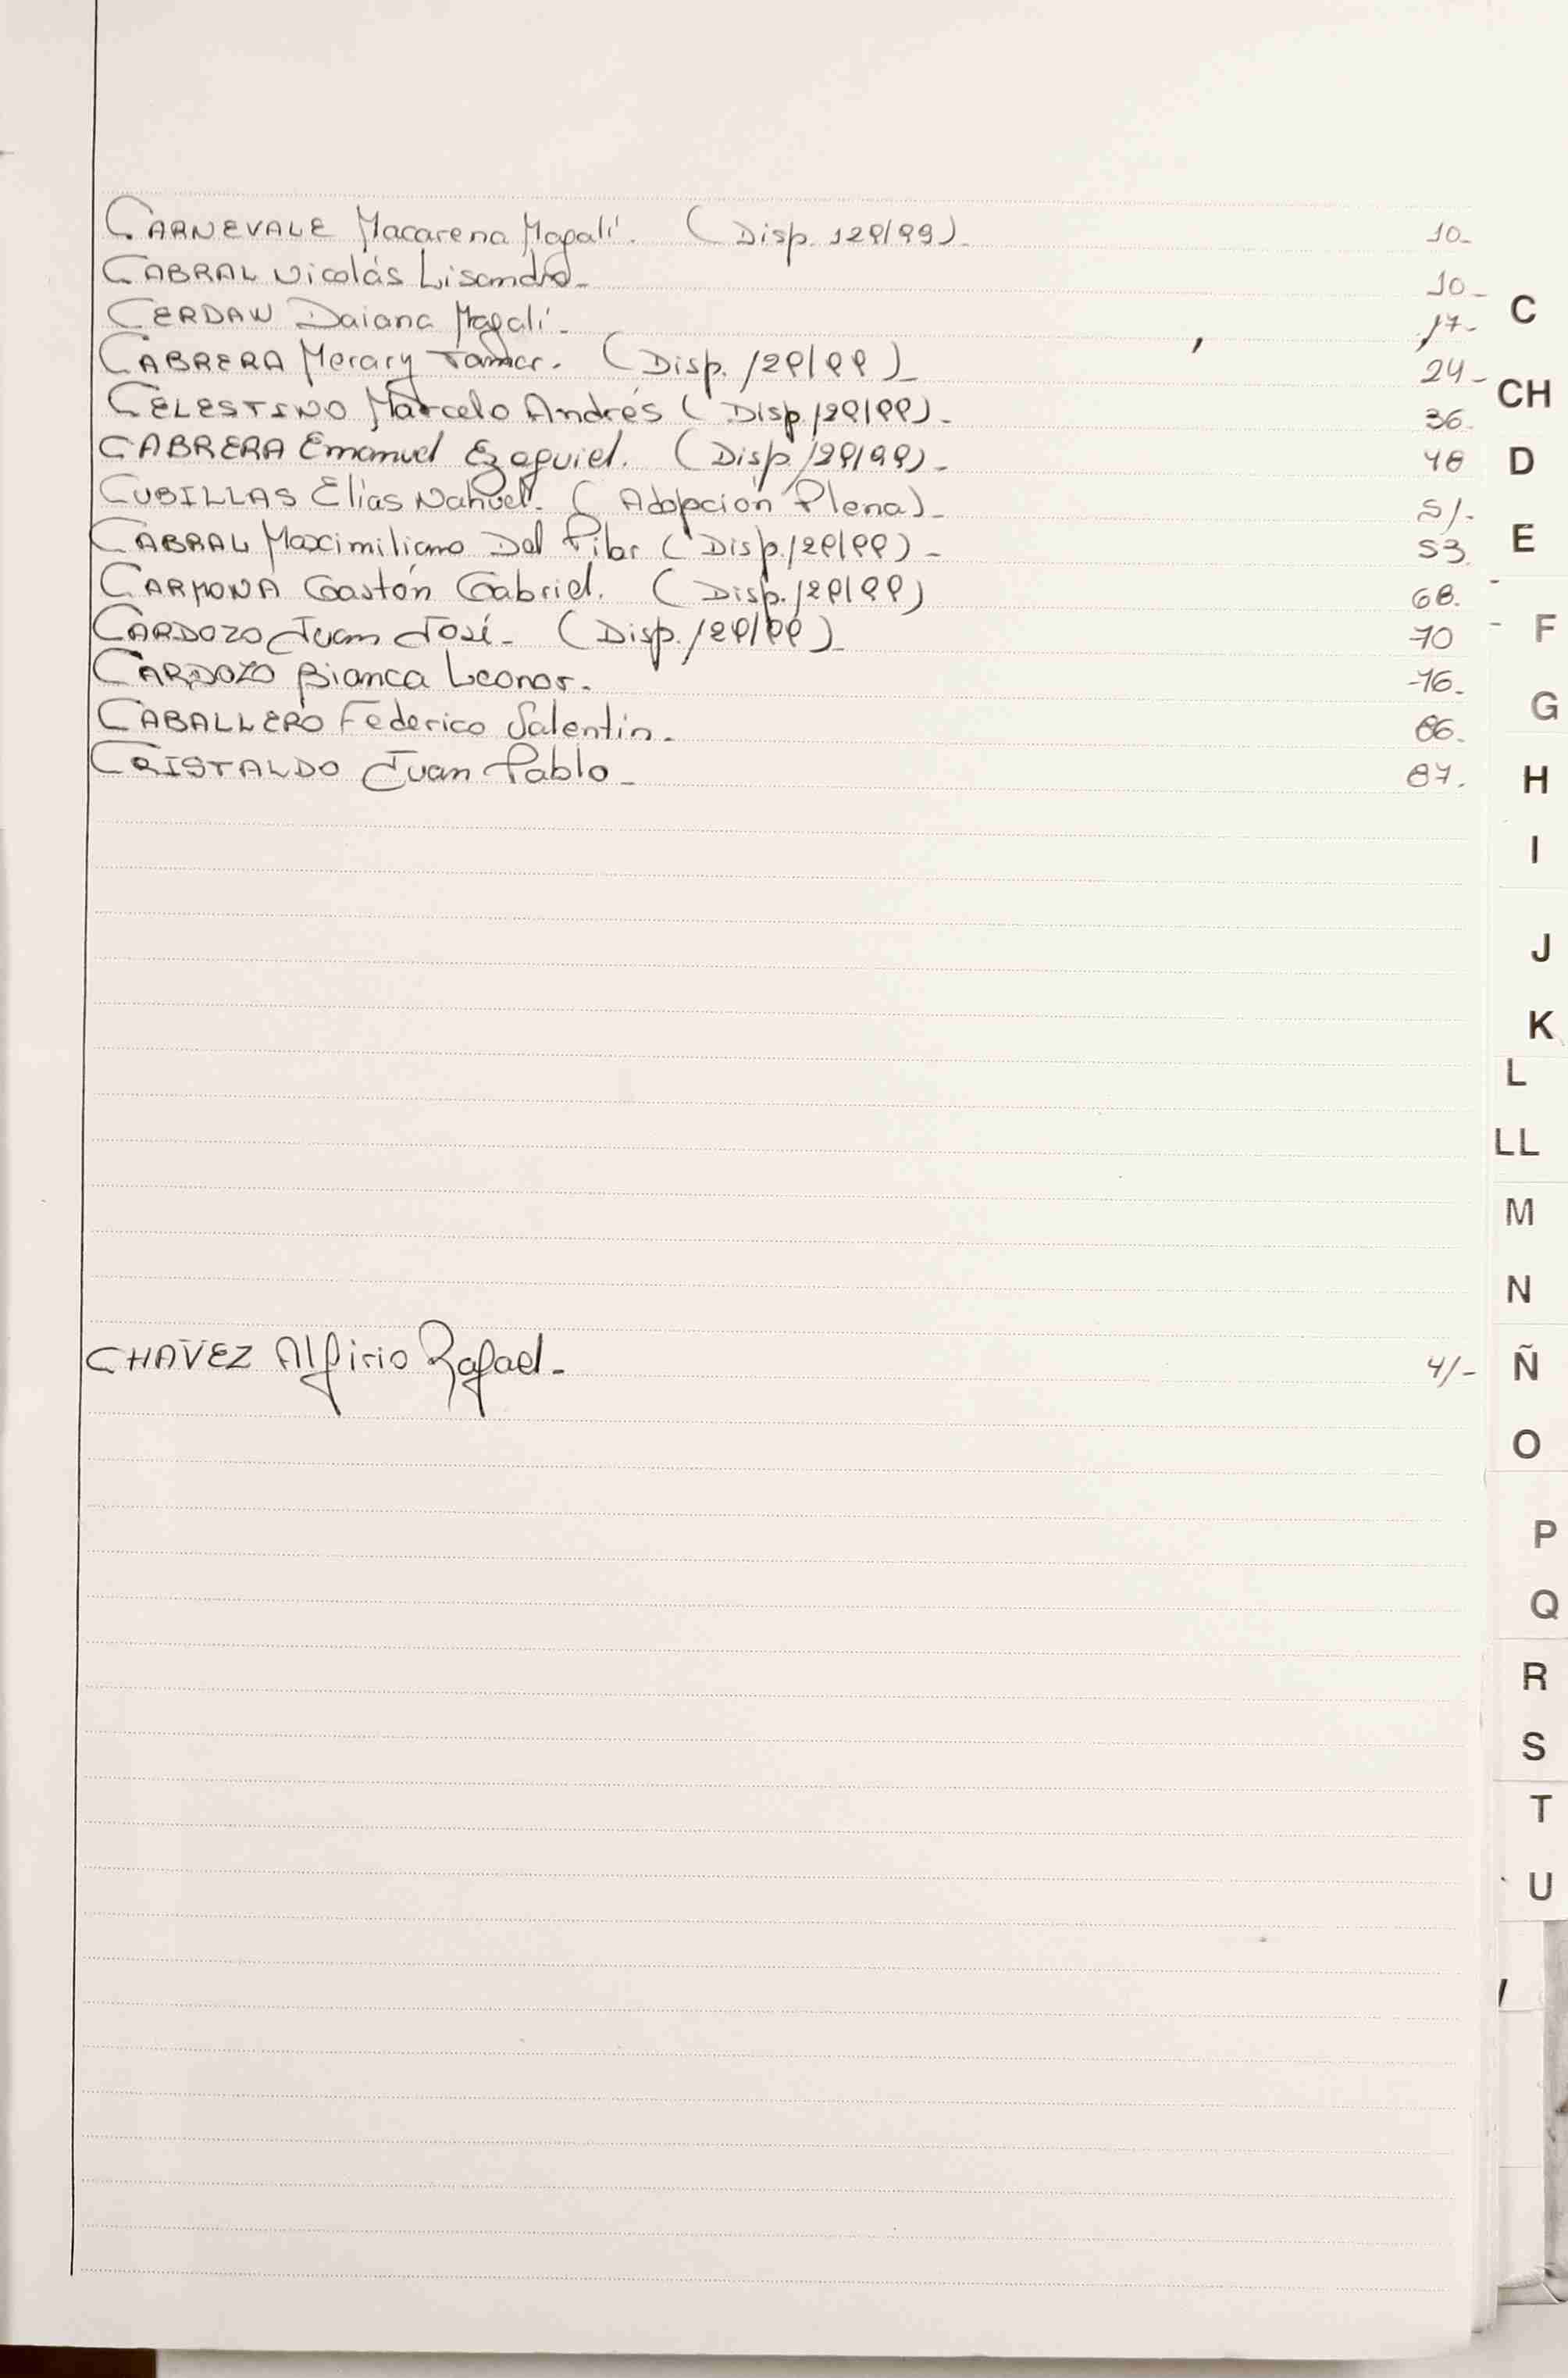 CARNEVALE Macarena Magalí. (Disp. 129/99)_ 10_
CABRAL Nicolás Lisandro_ 10_
CERDAN Daiana Magalí_ 17_
CABRERA Merary Tamar. (Disp. 129/99)_ 24_
CELESTINO Marcelo Andrés (Disp. 129/99)_ 36_
CABRERA Emanuel Ezequiel. (Disp. 129/99)_ 48
CUBILLAS Elías Nahuel. (Adopción Plena)_ 51_
CABRAL Maximiliano Del Pilar (Disp. 129/99)_ 53_
CARMONA Gastón Gabriel. (Disp. 129/99) 68_
CARDOZO Juan José_ (Disp. 129/99)_ 70
CARDOZO Bianca Leonor. 76_
CABALLERO Federico Valentín. 86_
CRISTALDO Juan Pablo_ 87.
CHAVEZ Alfirio Rafael_ 41_
C
CH
D
E
F
G
H
I
J
K
L
LL
M
N
Ñ
O
P
Q
R
S
T
U